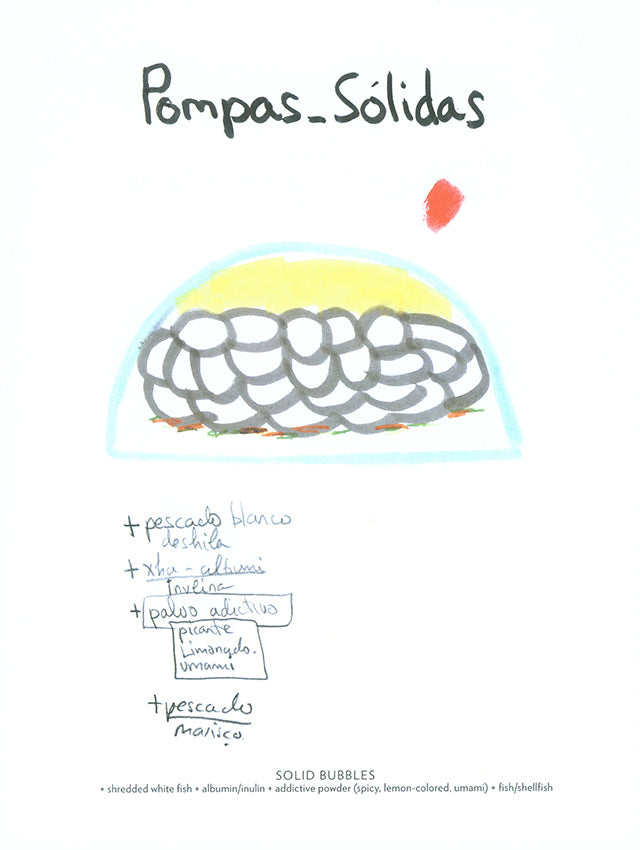 Pompas_Sólidas
+ pescado blanco
deshila
+ xha - albumi
inulina
+ polvo adictivo
picante
Limonado.
umami
+ pescado
marisco.
SOLID BUBBLES
+ shredded white fish + albumin/inulin + addictive powder (spicy, lemon-colored, umami) + fish/shellfish